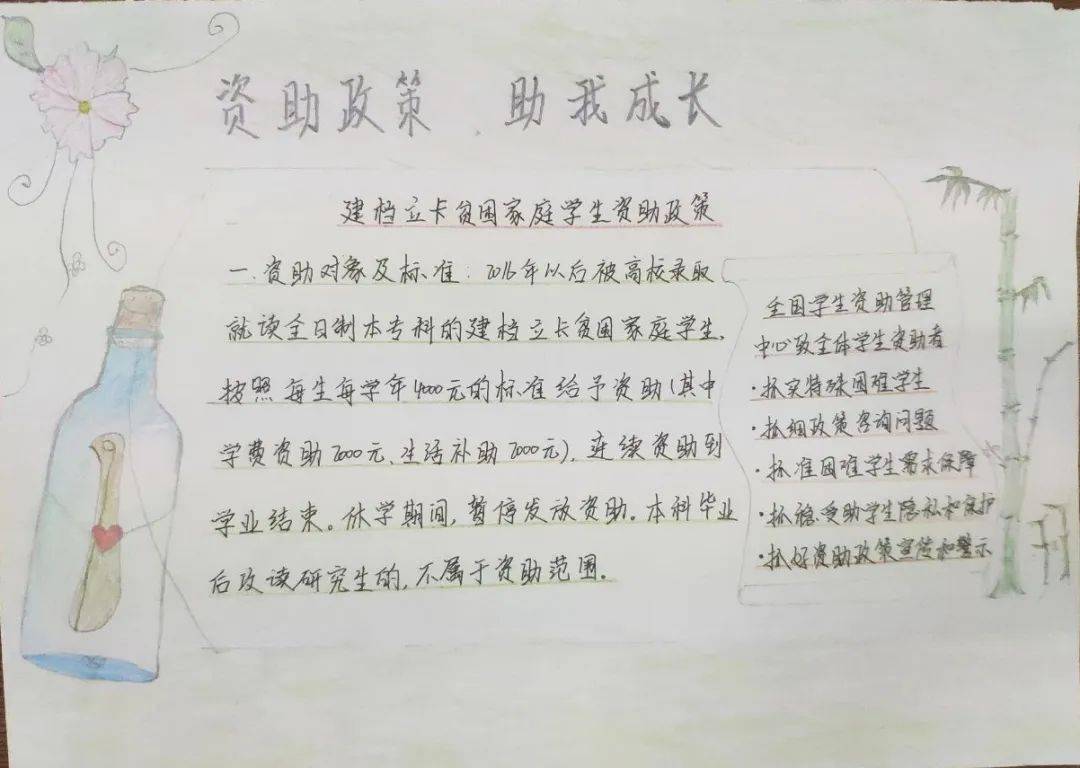 资助政策、助我成长
建档立卡贫困家庭学生资助政策
一.资助对象及标准:2016年以后被高校录取
就读全日制本专科的建档立卡贫困家庭学生,
按照每生每学年4000元的标准给予资助(其中
学费资助2000元、生活补助2000元),连续资助到
学业结束。休学期间,暂停发放资助。本科毕业
后攻读研究生的,不属于资助范围。
全国学生资助管理
中心致全体学生资助者
·抓实特殊困难学生
·抓细政策咨询问题
·抓准困难学生需求保障
·抓稳受助学生隐私和保护
·抓好资助政策宣传和警示